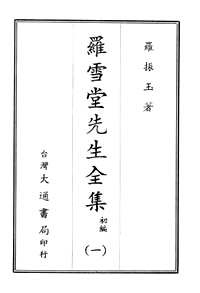 羅振玉著
羅雪堂先生全集
初編
(一)
台灣大通書局印行